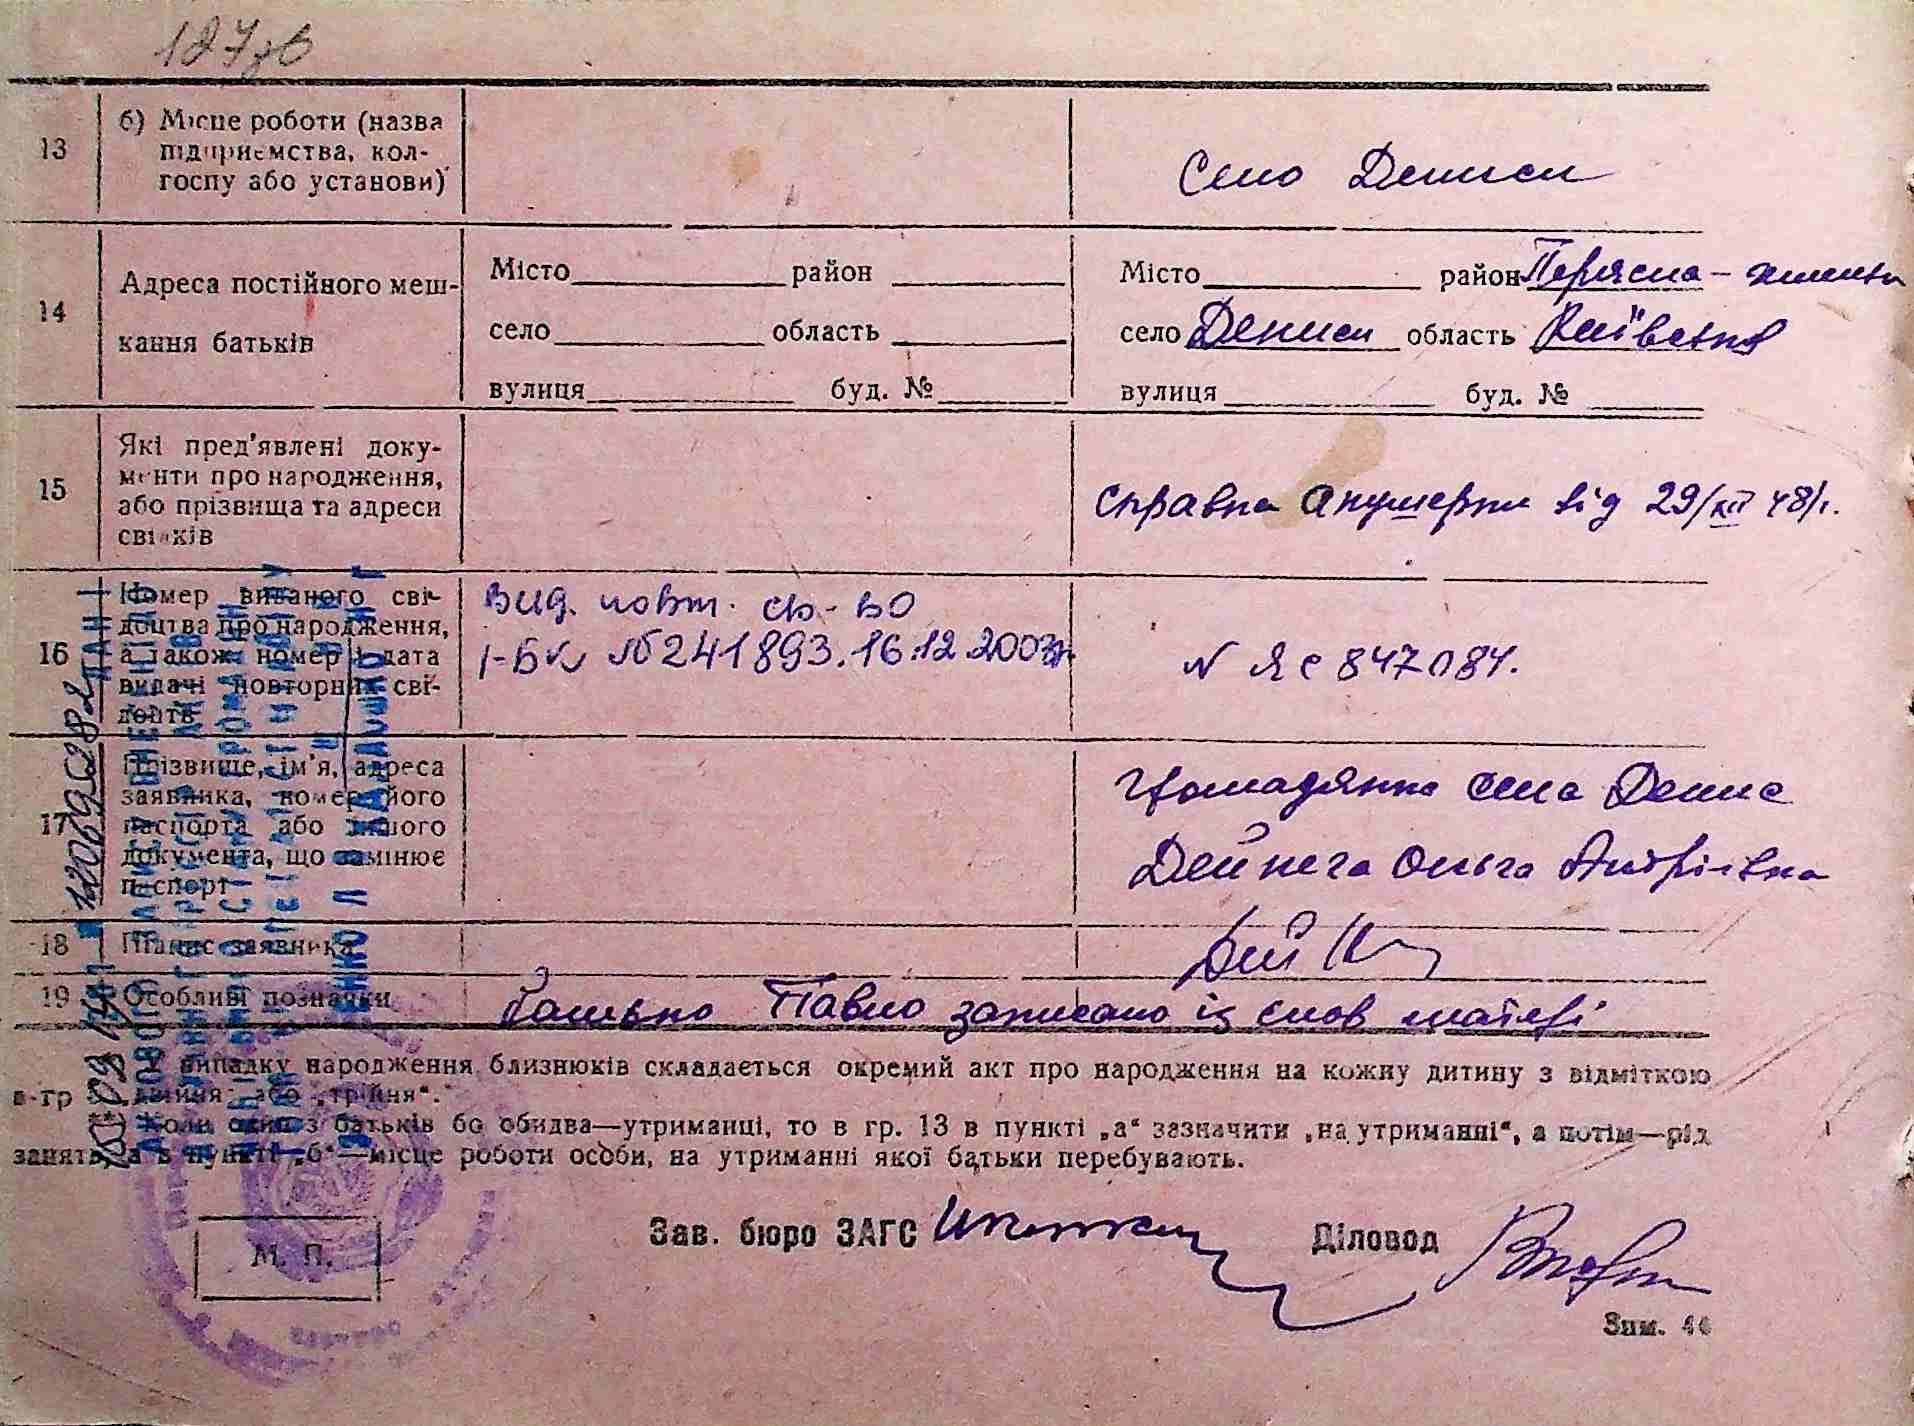 127зв
13
б) Місце роботи (назва
підприємства, кол-
госпу або установи)
Село Дениси
14
Адреса постійного меш-
кання батьків
Місто район
село область
вулиця буд. №
Місто район Переясла-
село Дениси область Київська
вулиця буд. №
15
Які пред'явлені доку-
менти про народження,
або прізвища та адреси
свідків
справка акушерки від 29/XII 48 р.
16
Номер виданого сві-
доцтва про народження,
а також номер і дата
видачі повторних сві-
доцтв
Вид. повт. св-во
І-БК №241893. 16.12.2003р.
N ЯС 847084.
17
Прізвище, ім'я, адреса
заявника, номер його
паспорта або іншого
документа, що замінює
паспорт
Громадянка села Денис
Дейнега Ольга Андріївна
18
Підпис заявника
19
Особливі позначки
батько Павло записано із слов матері
У випадку народження близнюків складається окремий акт про народження на кожну дитину з відміткою
в гр „двійня" або „трійня".
**) Коли один з батьків бо обидва—утриманці, то в гр. 13 в пункті „а" зазначити „на утриманні", а потім—рід
занять, а в пункті „б"—місце роботи особи, на утриманні якої батьки перебувають.
М. П.
Зав. бюро ЗАГС
Діловод
Зам. 44